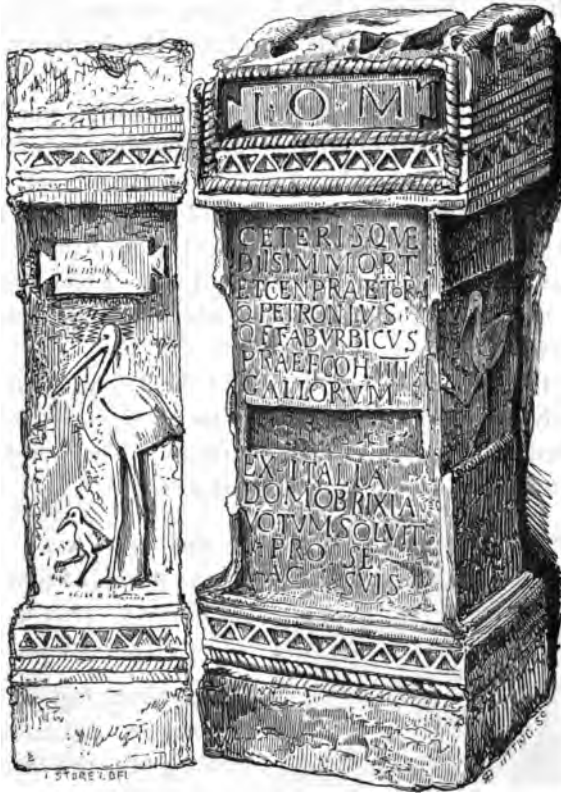 I · O · M
CETERISQVE
DIISIMMORT
ETGENPRAETOR
Q PETRONIVS
Q F FABVRBICVS
PRAEFCOH IIII
GALLORVM
EX · ITALIA
DOMOBRIXIA
VOTVMSOLVIT
PRO SE
AC SVIS
STOREY. DEL